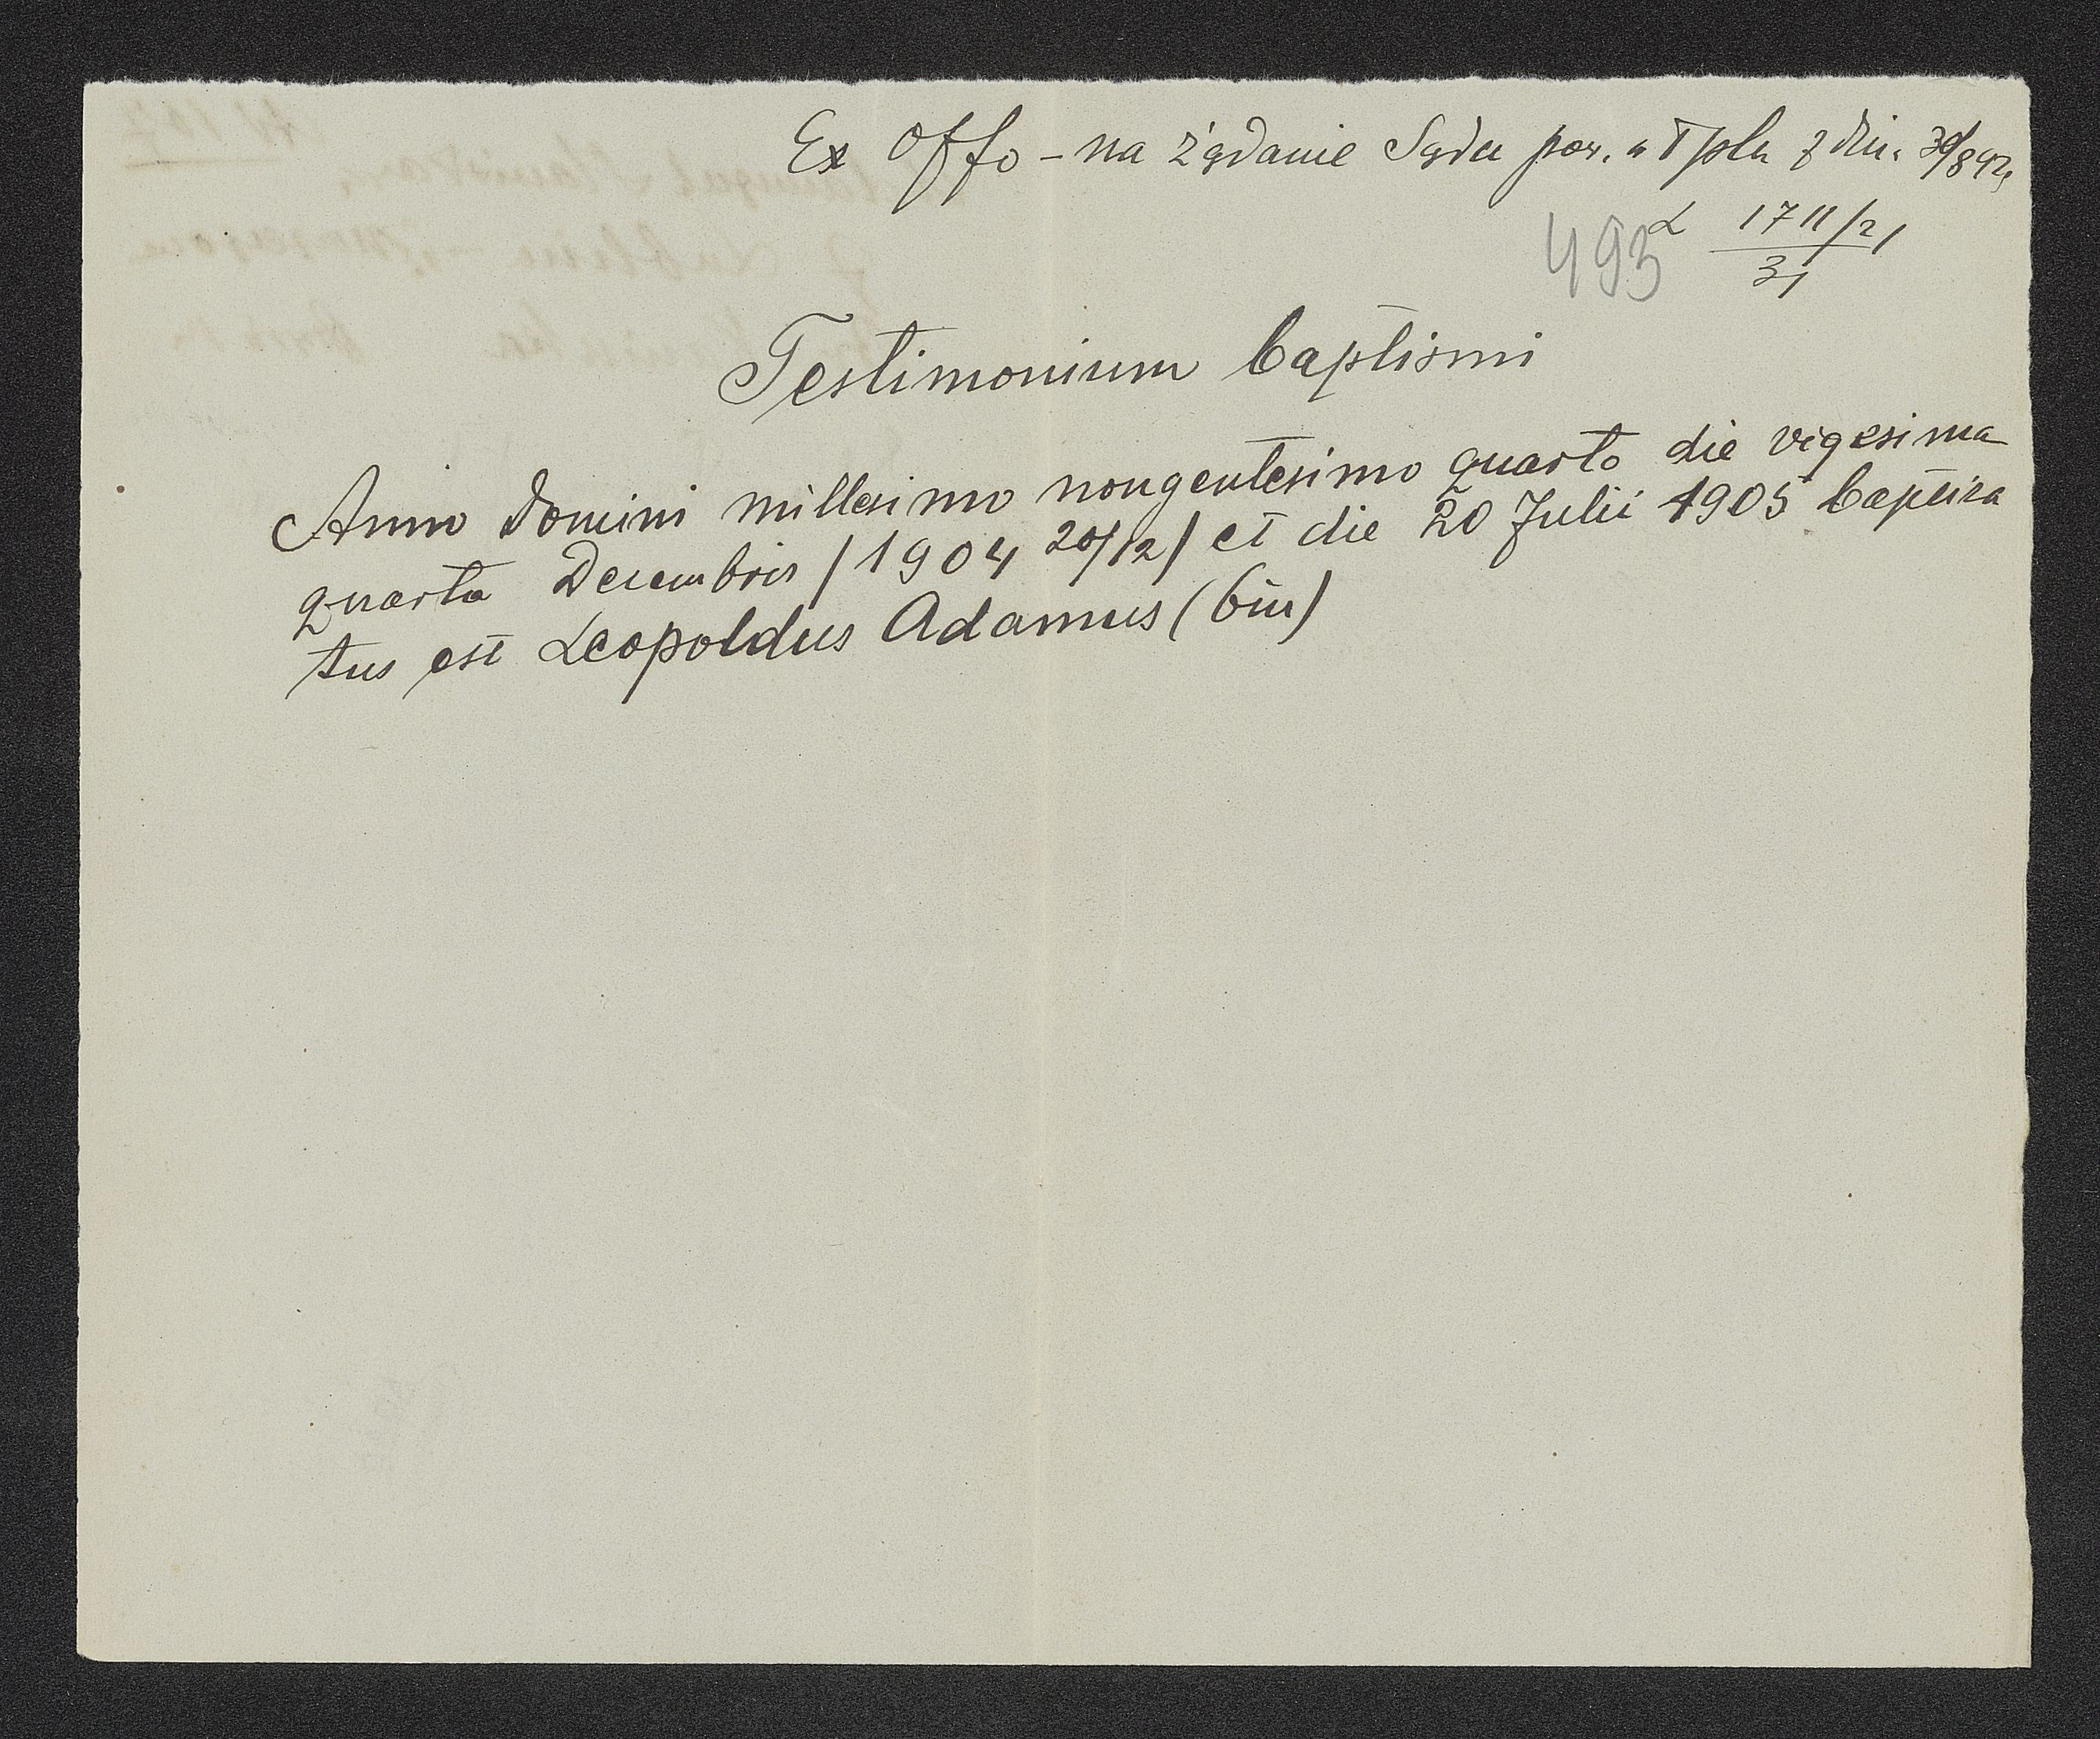 Ex Offo - na żądanie Sądu pow. w Tplu z dn. 30/8 42,
L 1711/21
31
493
Testimonium baptismi
Anno Domini millesimo nongentesimo quarto die vigesima
quarta Decembris /1904 20/12/ et die 20 Julii 1905 baptiza
tus est Leopoldus Adamus (bin)